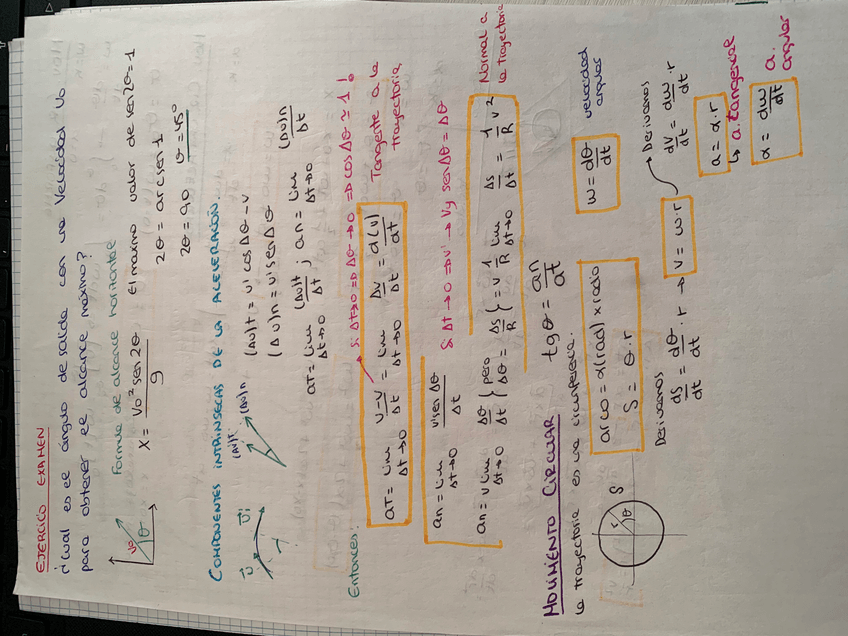 EJERCICIO EXAMEN
¿Cual es el ángulo de salida con una velocidad Vo
para obtener el alcance máximo?
Vo
θ
Formula de alcance horizontal
X = Vo² sen2θ / g
El maximo valor de sen2θ = 1
2θ = arcsen 1
2θ = 90 θ = 45°
COMPONENTES INTRINSECAS DE LA ACELERACIÓN
(Δv)t = v' cos Δθ - v
(Δv)n = v' sen Δθ
(Δv)t
(Δv)n
aT = lim Δt→0 (Δv)t / Δt ; an = lim Δt→0 (Δv)n / Δt
Entonces:
Si Δt→0 => Δθ→0 => cos Δθ ≃ 1 !
aT = lim Δt→0 v-v / Δt = lim Δt→0 Δv / Δt = d(v) / dt
Tangente a la
trayectoria
an = lim Δt→0 v' sen Δθ / Δt
Si Δt→0 => v' → v y sen Δθ = Δθ
an = v lim Δt→0 Δθ / Δt { pero Δθ = Δs / R } = v 1/R lim Δt→0 Δs / Δt = 1/R v²
Normal a
la trayectoria
tg θ = an / at
MOVIMIENTO CIRCULAR
la trayectoria es una circunferencia.
r
θ
S
arco = α(rad) x radio
S = θ · r
ω = dθ / dt
velocidad
angular
Derivamos
ds / dt = dθ / dt · r → v = ω · r
Derivamos
dv / dt = dω / dt · r
a = α · r
↳ a. tangencial
α = dω / dt
a.
angular